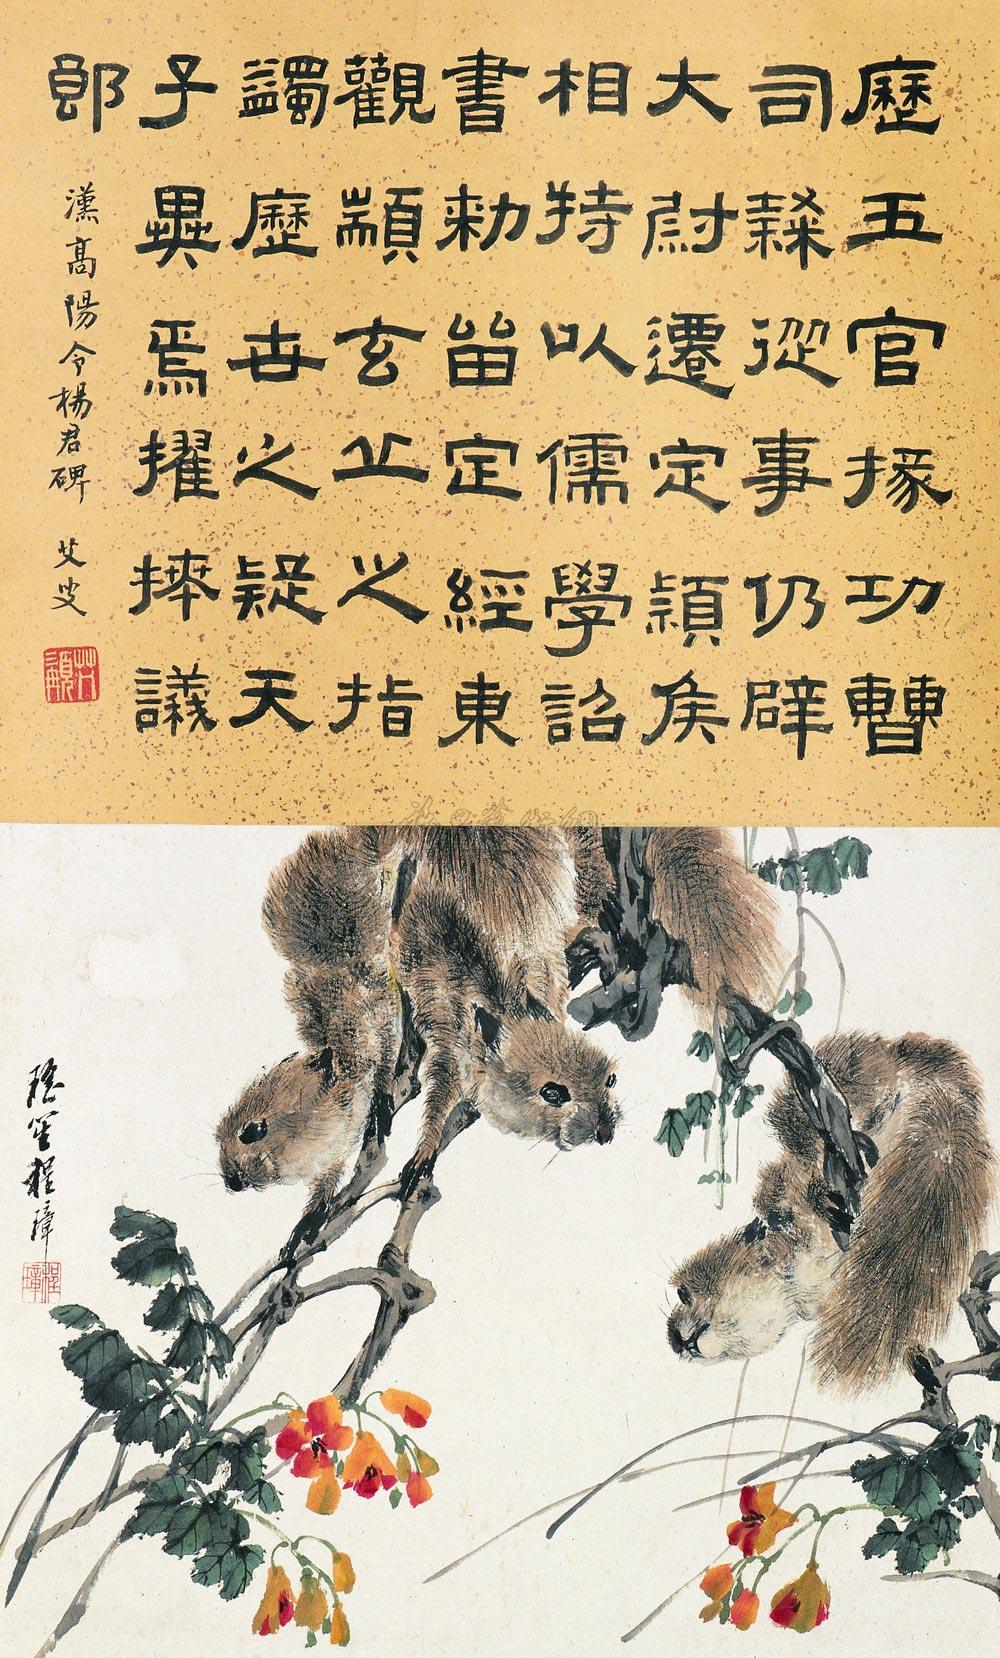 歷五官掾功曹
司隸從事仍辟
大尉遷定潁侯
相特以儒學詔
書勑留定經東
觀顓玄止之指
蠲歷世之疑天
子異焉擢捧議
郎
漢高陽令楊君碑
艾叟
瑤笙程璋
程璋